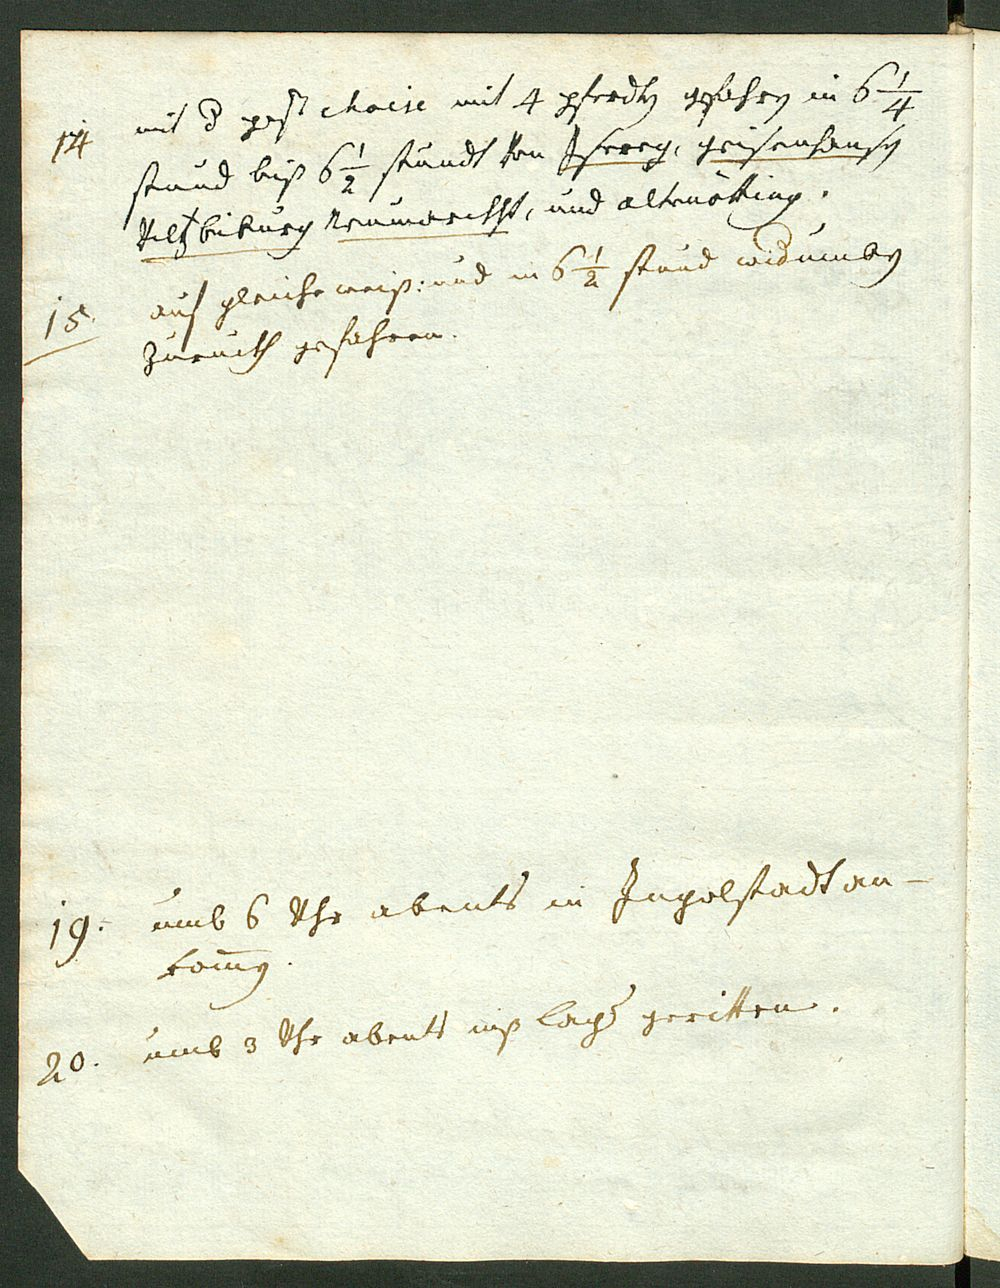 14 mit d post chaise mit 4 pferdten gefahren in 6 1/4
stund biß 6 1/2 stundt von Isereg, geisenhausen
Vilsbiburg Neumarckht, und altenötting.
15. auf gleiche weiß: und in 6 1/2 stund widumben
Zuruckh gefahren.
19. umb 6 Uhr abents in Ingolstadt an-
komen.
20. umb 3 Uhr abents inß lager geritten.